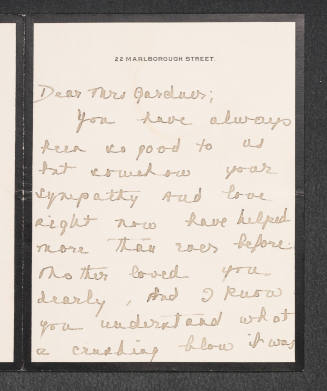 22 MARLBOROUGH STREET.
Dear Mrs Gardner;
You have always
been so good to us
but somehow your
sympathy and love
right now have helped
more than ever before.
Mother loved you
dearly, and I know
you understand what
a crushing blow it was